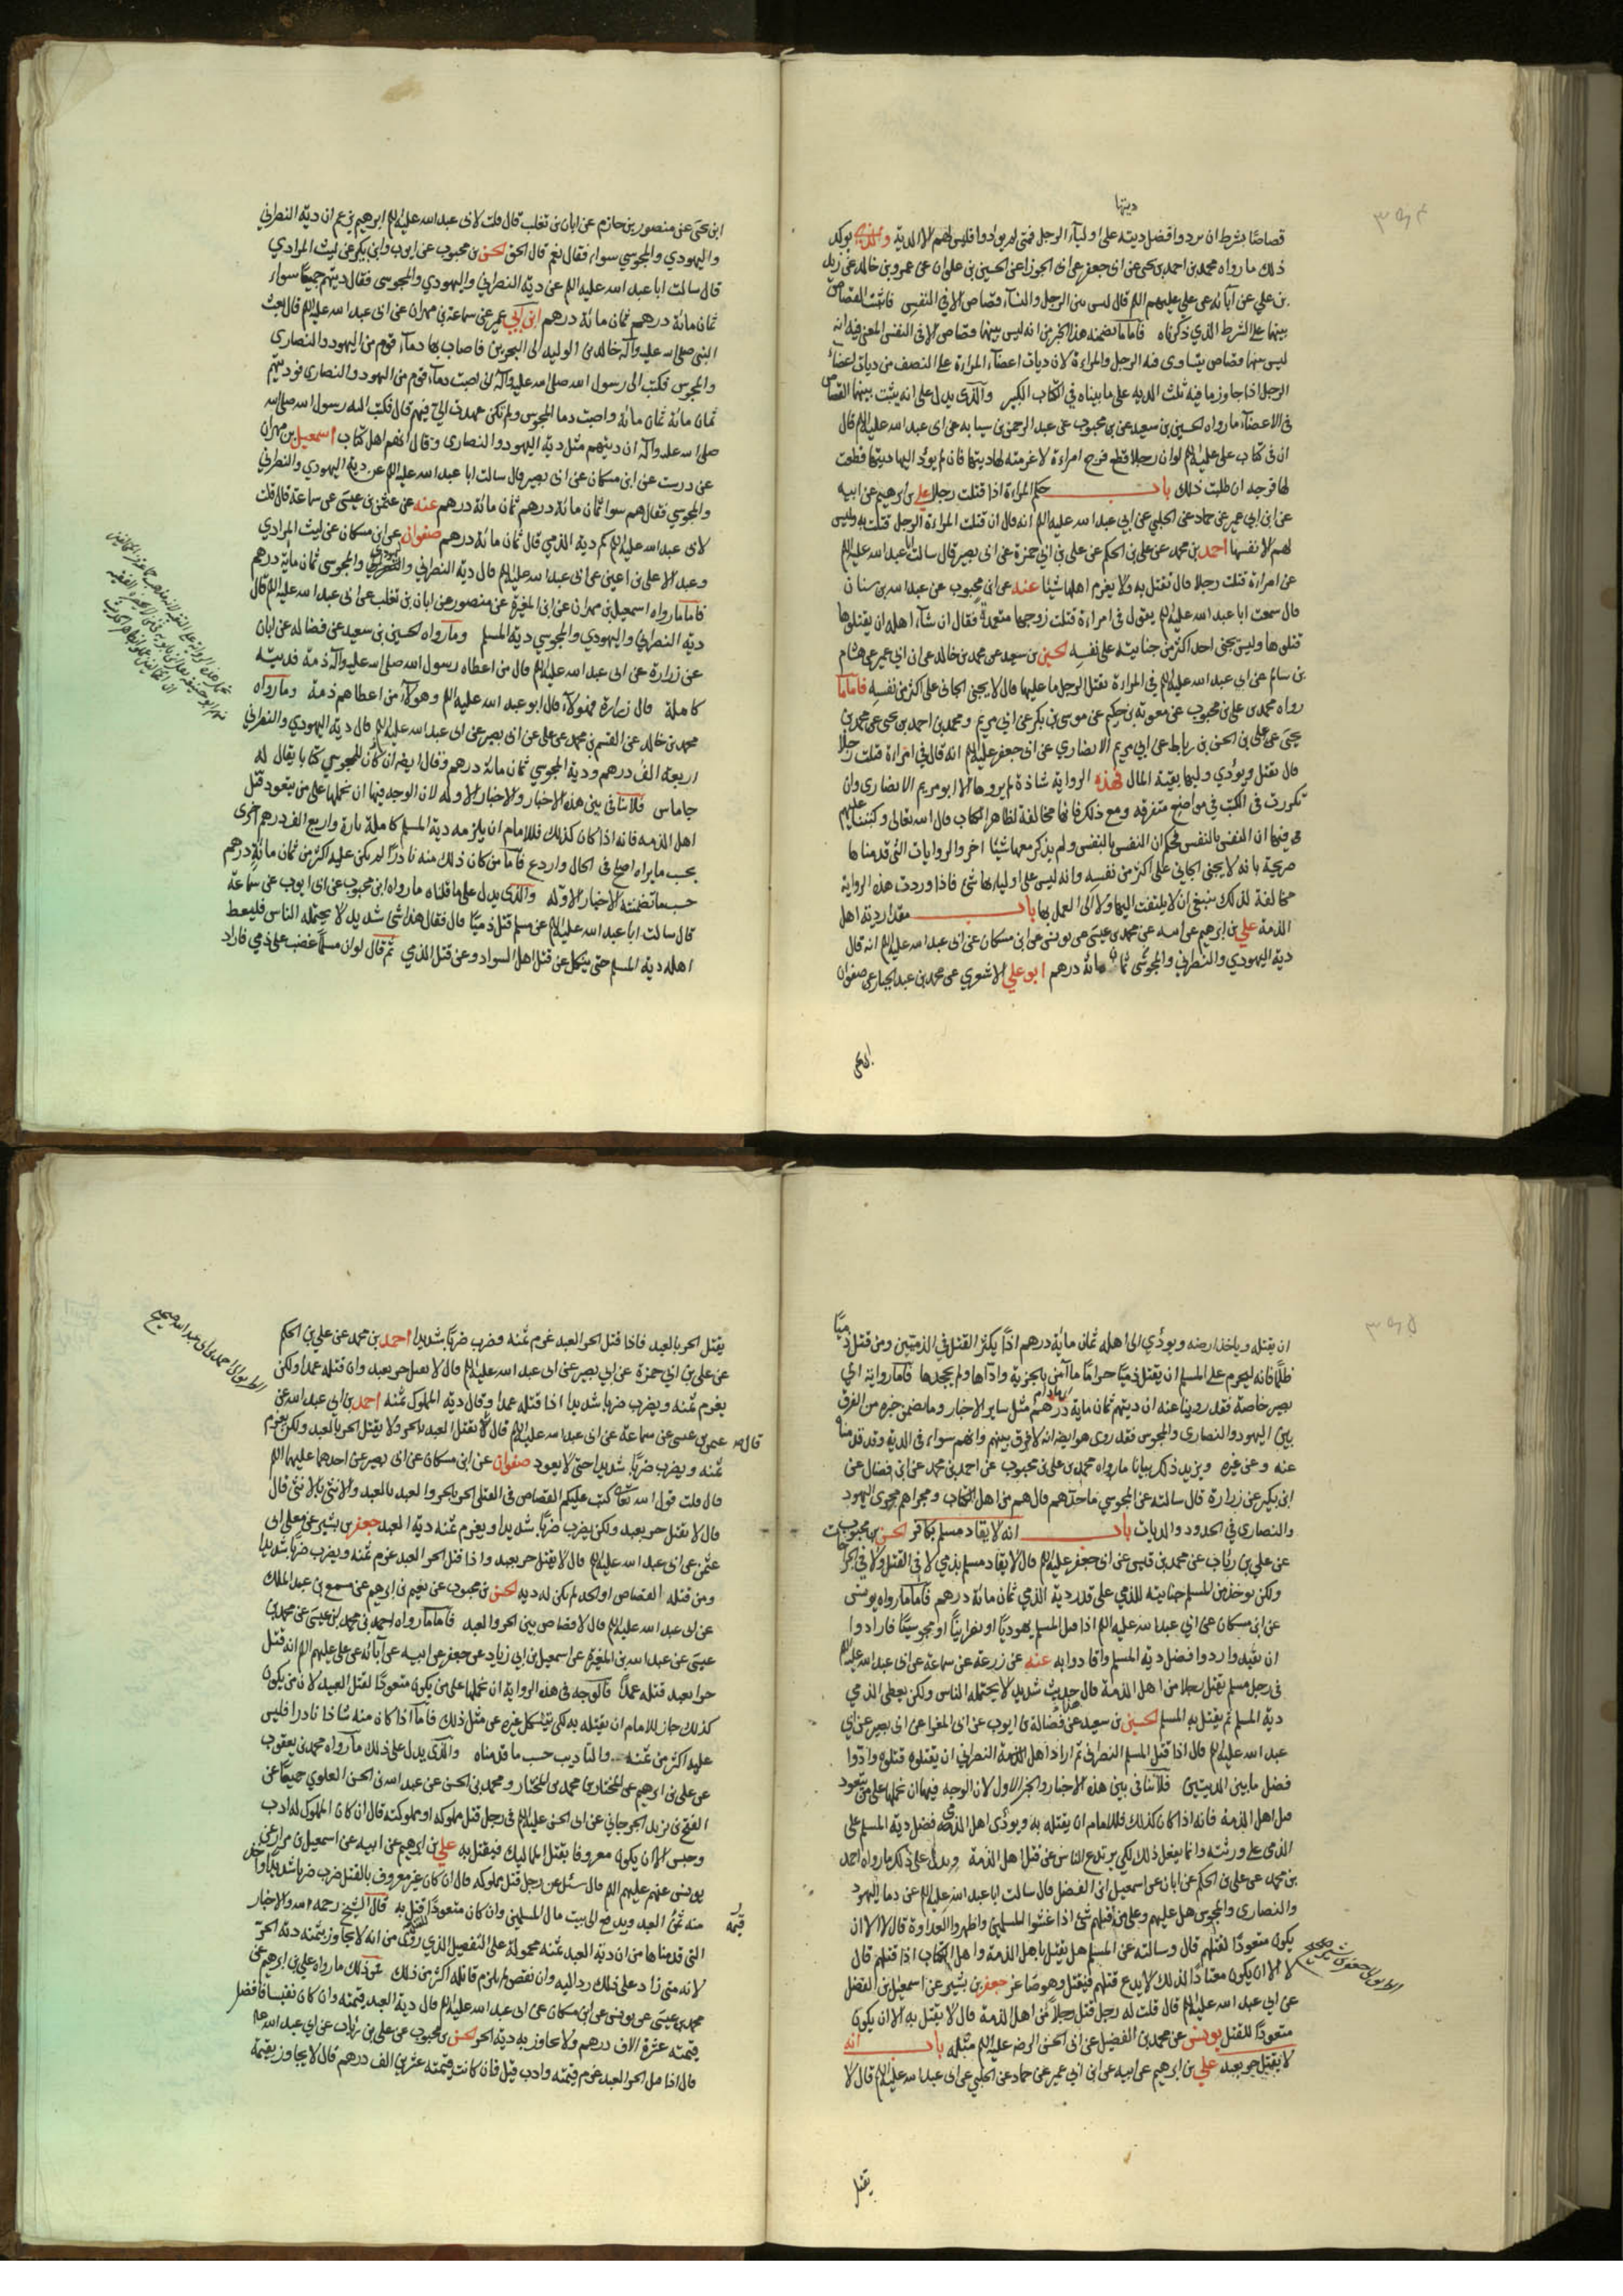 ٣٩٤
ديتها
قصاصا بشرط ان يردوا فضل ديته على اوليآء الرجل فمتى لم يؤدوا فليس لهم الا الدية والذي يؤكد
ذلك ما رواه محمد بن احمد بن يحيى عن ابى جعفر عن ابى الجوزا عن الحسين بن علوان عن عمرو بن خالد عن زيد
بن علي عن آبائه عن علي عليهم الم قال ليس بين الرجل والنسآء قصاص الا فى النفس فاثبت القصاص
بينهما على الشرط الذي ذكرناه فاما ما تضمنه هذا الخبر من انه ليس بينهما قصاص الا فى النفس المعنى فيه انه
ليس بينهما قصاص يتساوى فيه الرجل والمراءة لان ديات اعضآء المراءة على النصف من ديات اعضاء
الرجل اذا جاوز ما فيه ثلث الدية على ما بيناه في الكتاب الكبير والذى يدل على انه يثبت بينهما القصاص
فى الاعضآء ما رواه الحسين بن سعيد عن بن محبوب عن عبد الرحمن بن سيابه عن ابى عبد الله عليه الم قال
ان فى كتاب على عليه الم لو ان رجلا قطع فرج امراءة لاغرمنه لها ديتها فان لم يؤد اليها ديتها قطعت
لها فرجه ان طلبت ذلك باب حكم المراءة اذا قتلت رجلا علي بن ابرهيم عن ابيه
عن ابن ابي عمير عن حماد عن الحلبي عن ابي عبد الله عليه الم انه قال ان قتلت المراءة الرجل قتلت به وليس
لهم الا نفسها احمد بن محمد عن علي بن الحكم عن علي بن ابي حمزة عن ابى بصير قال سالت ابا عبد الله عليه الم
عن امراءة قتلت رجلا قال تقتل به ولا يغرم اهلها شيئا عنه عن ابن محبوب عن عبد الله بن سنان
قال سمعت ابا عبد الله عليه الم يقول فى امراءة قتلت زوجها متعمدة فقال ان شآء اهله ان يقتلوها
قتلوها وليس يجنى احد اكثر من جنايته على نفسه الحسين بن سعيد عن محمد بن خالد عن ابن ابي عمير عن هشام
بن سالم عن ابي عبد الله عليه الم فى المراءة تقتل الرجل ما عليها قال لا يجنى الجانى على اكثر من نفسه فاما ما
رواه محمد بن على بن محبوب عن معوية بن حكيم عن موسى بن بكر عن ابي مريم ومحمد بن احمد بن يحيى عن محمد بن
يحيى عن على بن الحسن بن رباط عن ابي مريم الانصاري عن ابى جعفر عليه الم انه قال في امراءة قتلت رجلا
قال تقتل ويؤدي وليها بقية المال فهذه الرواية شاذة لم يروها الا ابو مريم الانصارى وان
تكررت فى الكتب فى مواضع متفرقه ومع ذلك فانها مخالفة لظاهر الكتاب قال الله تعالى وكتبنا عليهم
فيها ان النفس بالنفس فحكم ان النفس بالنفس ولم يذكر معها شيئا اخر والروايات التى قدمناها
صريحة بانه لا يجنى الجاني على اكثر من نفسه وانه ليس على اوليائها شئ فاذا وردت هذه الرواية
مخالفة لذلك ينبغى ان لا يلتفت اليها ولا الى العمل بها باب مقدار دية اهل
الذمة علي بن ابرهيم عن ابيه عن محمد بن عيسى عن يونس عن ابن مسكان عن ابى عبد الله عليه الم انه قال
دية اليهودي والنصراني والمجوسى ثمان مائة درهم ابو علي الاشعري عن محمد بن عبد الجبار عن صفوان
ابن يحيى
ابن يحيى عن منصور بن حازم عن ابان بن تغلب قال قلت لابى عبد الله عليه الم ابرهيم يزعم ان دية النصراني
واليهودي والمجوسي سواء فقال نعم قال الحق الحسن بن محبوب عن ابى ايوب وابن بكير عن ليث المرادي
قال سالت ابا عبد الله عليه الم عن دية النصراني واليهودي والمجوسى فقال ديتهم جميعا سواء
ثمان مائة درهم ثمان مائة درهم ابن ابي عمير عن سماعة بن مهران عن ابى عبد الله عليه الم قال بعث
النبى صلى الله عليه وآله خالد بن الوليد الى البحرين فاصاب بها دمآء قوم من اليهود والنصارى
والمجوس فكتب الى رسول الله صلى الله عليه وآله انى اصبت دمآء قوم من اليهود والنصارى فوديتهم
ثمان مائة ثمان مائة واصبت دما المجوس ولم تكن عهدت الي فيهم قال فكتب اليه رسول الله صلى الله
صلى الله عليه وآله ان ديتهم مثل دية اليهود والنصارى وقال انهم اهل كتاب اسمعيل بن مهران
عن درست عن ابن مسكان عن ابى بصير قال سالت ابا عبد الله عليه الم عن دية اليهودي والنصراني
والمجوسي فقال هم سوا ثمان مائة درهم ثمان مائة درهم عنه عن عثمن بن عيسى عن سماعة قال قلت
لابى عبد الله عليه الم كم دية الذمي قال ثمان مائة درهم صفوان عن ابن مسكان عن ليث المرادي
وعبد الاعلى بن اعين عن ابى عبد الله عليه الم قال دية النصراني واليهودي والمجوسى ثمان مائة درهم
فاما ما رواه اسمعيل بن مهران عن ابن المغيرة عن منصور عن ابان بن تغلب عن ابى عبد الله عليه الم قال
دية النصراني واليهودي والمجوسي دية المسلم وما رواه الحسين بن سعيد عن فضاله عن ابان
عن زرارة عن ابى عبد الله عليه الم قال من اعطاه رسول الله صلى الله عليه وآله ذمة فديته
كاملة قال زرارة فهؤلآء قال ابو عبد الله عليه الم وهؤلآء من اعطاهم ذمة وما رواه
محمد بن خالد عن القسم بن محمد عن علي عن ابى بصير عن ابى عبد الله عليه الم قال دية اليهودي والنصراني
اربعة الف درهم ودية المجوسي ثمان مائة درهم وقال ايضا ان للمجوسي كتابا يقال له
جاماس فلا تنافى بين هذه الاخبار والاخبار الاوله لان الوجه فيها ان نحملها على من يتعود قتل
اهل الذمة فانه اذا كان كذلك فللامام ان يلزمه دية المسلم كاملة تارة واربع الف درهم اخرى
بحسب ما يراه اصلح فى الحال واردع فاما من كان ذلك منه نادرا لم يكن عليه اكثر من ثمان مائة درهم
حسب ما تضمنته الاخبار الاوله والذى يدل على ما قلناه ما رواه ابن محبوب عن ابى ايوب عن سماعة
قال سالت ابا عبد الله عليه الم عن مسلم قتل ذميا قال فقال هذا شئ شديد لا يحتمله الناس فليعط
اهله دية المسلم حتى ينكل عن قتل اهل السواد وعن قتل الذمي ثم قال لو ان مسلما غضب على ذمي فاراد
٣٩٥
ان يقتله وياخذ ارضه ويؤدي الى اهله ثمان مائة درهم اذا يكثر القتل فى الذميين ومن قتل ذميا
ظلما فانه ليحرم على المسلم ان يقتل ذميا حراما ما آمن بالجزية واداها ولم يجحدها فاما رواية ابي
بصير خاصة فقد روينا عنه ان ديتهم ثمان مائة درهم مثل ساير الاخبار وما تضمن خبره من الفرق
بين اليهود والنصارى والمجوس فقد روى هو ايضا انه لا فرق بينهم وانهم سواء فى الدية وقد قدمناه
عنه وعن غيره ويزيد ذلك بيانا ما رواه محمد بن على بن محبوب عن احمد بن محمد عن ابن فضال عن
ابن بكير عن زرارة قال سالته عن المجوسي ما حدهم قال هم من اهل الكتاب ومجراهم مجرى اليهود
والنصارى في الحدود والديات باب انه لا يقاد مسلم بكافر الحسن بن محبوب
عن علي بن رئاب عن محمد بن قيس عن ابى جعفر عليه الم قال لا يقاد مسلم بذمي لا فى القتل ولا فى الجراحات
ولكن يوخذ من المسلم جنايته للذمي على قدر دية الذمي ثمان مائة درهم فاما ما رواه يونس
عن ابن مسكان عن ابي عبد الله عليه الم اذا قتل المسلم يهوديا او نصرانيا او مجوسيا فارادوا
ان يقيدوا ردوا فضل دية المسلم واقادوا به عنه عن زرعة عن سماعة عن ابى عبد الله عليه الم
فى رجل مسلم يقتل رجلا من اهل الذمة قال هذا حديث شديد لا يحتمله الناس ولكن يعطى الذمي
دية المسلم ثم يقتل به المسلم الحسين بن سعيد عن فضالة بن ايوب عن ابى المغرا عن ابى بصير عن ابي
عبد الله عليه الم قال اذا قتل المسلم النصرانى ثم اراد اهل النصرانى ان يقتلوه قتلوه وادوا
فضل ما بين الديتين فلا تنافى بين هذه الاخبار والخبر الاول لان الوجه فيها ان نحملها على من يتعود
قتل اهل الذمة فانه اذا كان كذلك فللامام ان يقتله به ويؤدى اهل الذمى فضل دية المسلم على
الذمى على ورثته وانما يفعل ذلك لكي يرتدع الناس عن قتل اهل الذمة ويدل على ذلك ما رواه احمد
بن محمد عن علي بن الحكم عن ابان عن اسمعيل ابن الفضل قال سالت ابا عبد الله عليه الم عن دما اليهود
والنصارى والمجوس هل عليهم وعلى من قتلهم شئ اذا غشوا المسلمين واظهروا العداوة قال لا الا ان
يكون متعودا لقتلهم قال وسالته عن المسلم هل يقتل باهل الذمة واهل الكتاب اذا قتلهم قال
لا الا ان يكون معتادا لذلك لا يدع قتلهم فيقتل وهو صاغر جعفر بن بشير عن اسمعيل بن الفضل
عن ابي عبد الله عليه الم قال قلت له رجل قتل رجلا من اهل الذمة قال لا يقتل به الا ان يكون
متعودا للقتل يونس عن محمد بن الفضيل عن ابى الحسن الرضا عليه الم مثله باب انه
لا يقتل حر بعبد علي بن ابرهيم عن ابيه عن ابن ابي عمير عن حماد عن الحلبي عن ابى عبد الله عليه الم قال لا
يقتل
يقتل الحر بالعبد فاذا قتل الحر العبد غرم ثمنه وضرب ضربا شديدا احمد بن محمد عن علي بن الحكم
عن علي بن ابي حمزة عن ابي بصير عن ابى عبد الله عليه الم قال لا يقتل حر بعبد وان قتله عمدا ولكن
يغرم ثمنه ويضرب ضربا شديدا اذا قتله عمدا وقال دية المملوك ثمنه احمد بن ابى عبد الله عن
عثمن بن عيسى عن سماعة عن ابى عبد الله عليه الم قال يقتل العبد بالحر ولا يقتل الحر بالعبد ولكن يغرم
ثمنه ويضرب ضربا شديدا حتى لا يعود صفوان عن ابن مسكان عن ابى بصير عن احدهما عليهما الم
قال قلت قول الله تعالى كتب عليكم القصاص فى القتلى الحر بالحر والعبد بالعبد والانثى بالانثى قال
قال لا يقتل حر بعبد ولكن يضرب ضربا شديدا ويغرم ثمنه دية العبد جعفر بن بشير عن معلى ابى
عثمن عن ابى عبد الله عليه الم قال لا يقتل حر بعبد واذا قتل الحر العبد غرم ثمنه ويضرب ضربا شديدا
ومن قتله القصاص او الحد لم يكن له دية الحسن بن محبوب عن نعيم بن ابرهيم عن مسمع بن عبد الملك
عن ابى عبد الله عليه الم قال لا قصاص بين الحر والعبد فاما ما رواه احمد بن محمد بن عيسى عن محمد بن
عيسى عن عبد الله بن المغيرة عن اسمعيل بن ابي زياد عن جعفر عن ابيه عن آبائه عن على عليهم الم انه قتل
حرا بعبد قتله عمدا فالوجه فى هذه الرواية ان نحملها على من يكون متعودا لقتل العبيد لان من يكون
كذلك جاز للامام ان يقتله به لكى ينكل غيره عن مثل ذلك فاما اذا كان منه شاذا نادرا فليس
عليه اكثر من ثمنه والتاديب حسب ما قدمناه والذى يدل على ذلك ما رواه محمد بن يعقوب
عن على بن ابرهيم عن المختار بن محمد بن المختار ومحمد بن الحسن عن عبد الله بن الحسن العلوي جميعا عن
الفتح بن يزيد الجرجاني عن ابى الحسن عليه الم فى رجل قتل مملوكه او مملوكته قال ان كان المملوك له ادب
وحبس الا ان يكون معروفا بقتل المماليك فيقتل به علي بن ابرهيم عن ابيه عن اسمعيل بن مرار عن
يونس عنهم عليهم الم قال سئل عن رجل قتل مملوكه قال ان كان غير معروف بالقتل ضرب ضربا شديدا واخذ
منه ثمن العبد ويدفع الى بيت مال المسلمين وان كان متعودا قتل به قال الشيخ رحمه الله والاخبار
التى قدمناها من ان دية العبد ثمنه محمولة على التفصيل الذي روى من انه لا يجاوز بثمنه دية الحر
لانه متى زاد على ذلك رد اليه وان نقص لم يلزم قاتله اكثر من ذلك فمن ذلك ما رواه علي بن ابرهيم عن
محمد بن عيسى عن يونس عن ابن مسكان عن ابى عبد الله عليه الم قال دية العبد قيمته وان كان نفيسا فافضل
قيمته عشرة الاف درهم ولا يجاوز به دية الحر الحسن بن محبوب عن علي بن رئاب عن ابي عبد الله عليه
قال اذا قتل الحر العبد غرم قيمته وادب قيل فان كانت قيمته عشرين الف درهم قال لا يجاوز بقيمة